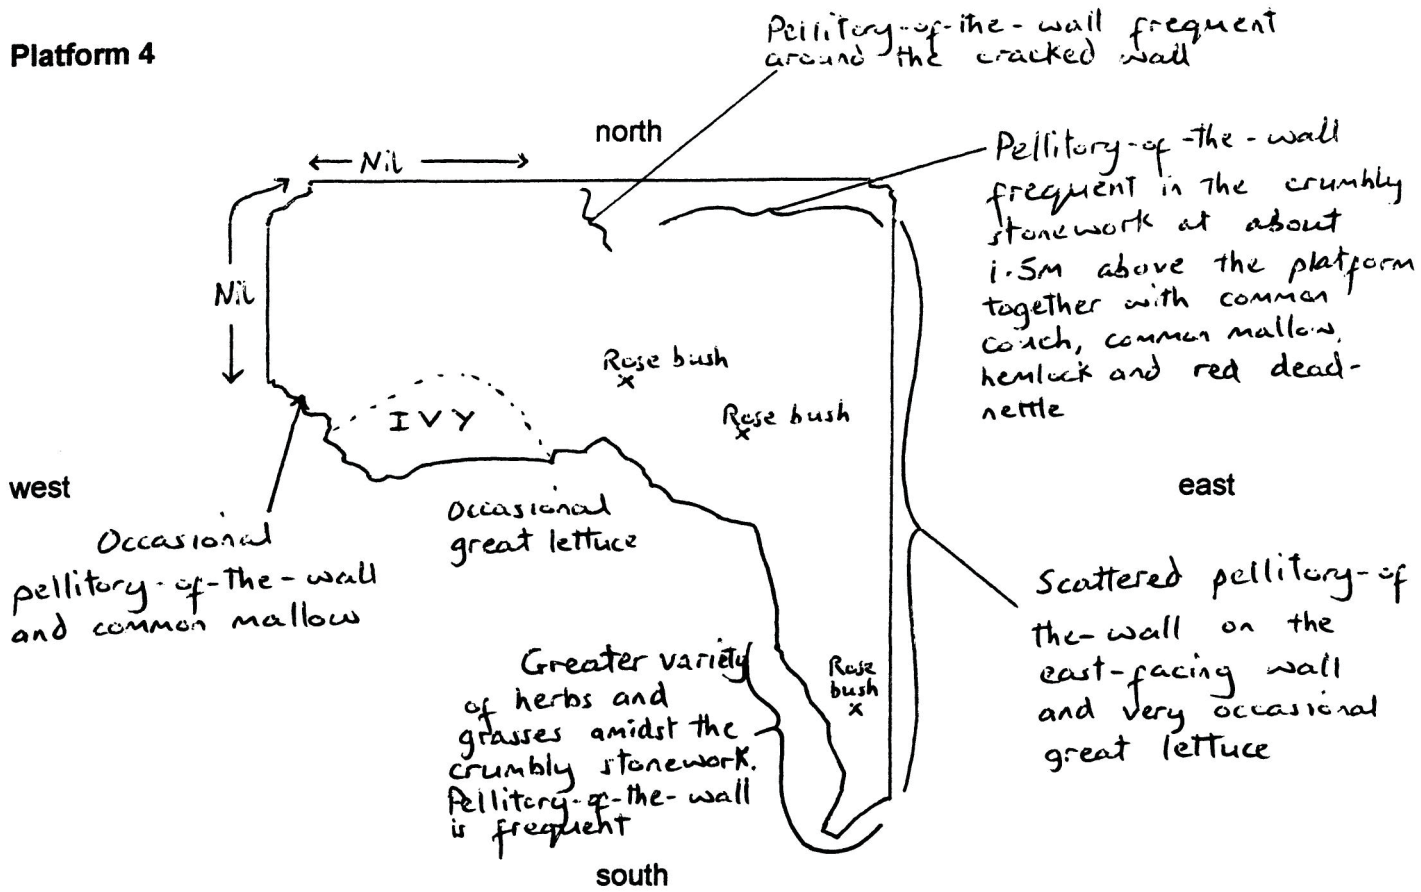 Platform 4
Pellitory-of-the-wall frequent
around the cracked wall
north
Nil
Pellitory-of-the-wall
frequent in the crumbly
stonework at about
1.5m above the platform
together with common
couch, common mallow,
hemlock and red dead-
nettle
Nil
Rose bush
Rose bush
IVY
west
east
Occasional
great lettuce
Occasional
pellitory-of-the-wall
and common mallow
Scattered pellitory-of
the-wall on the
east-facing wall
and very occasional
great lettuce
Greater variety
of herbs and
grasses amidst the
crumbly stonework.
Pellitory-of-the-wall
is frequent
Rose
bush
south